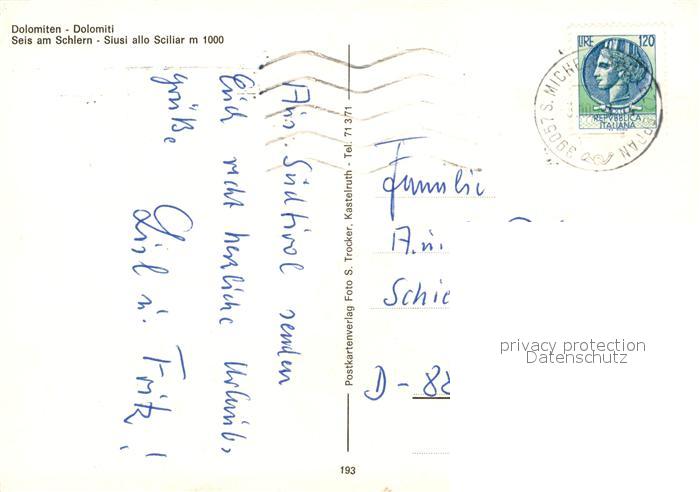 Dolomiten - Dolomiti
Seis am Schlern - Siusi allo Sciliar m 1000
Aus Südtirol senden
Euch recht herzliche Urlaubs-
grüße
Lisl u. Fritz!
Postkartenverlag Foto S. Trocker, Kastelruth - Tel. 71371
193
LIRE 120
REPVBBLICA
ITALIANA
39057 S. MICHE PPIAN
Familie
A. u.
Schie
D - 88
privacy protection
Datenschutz